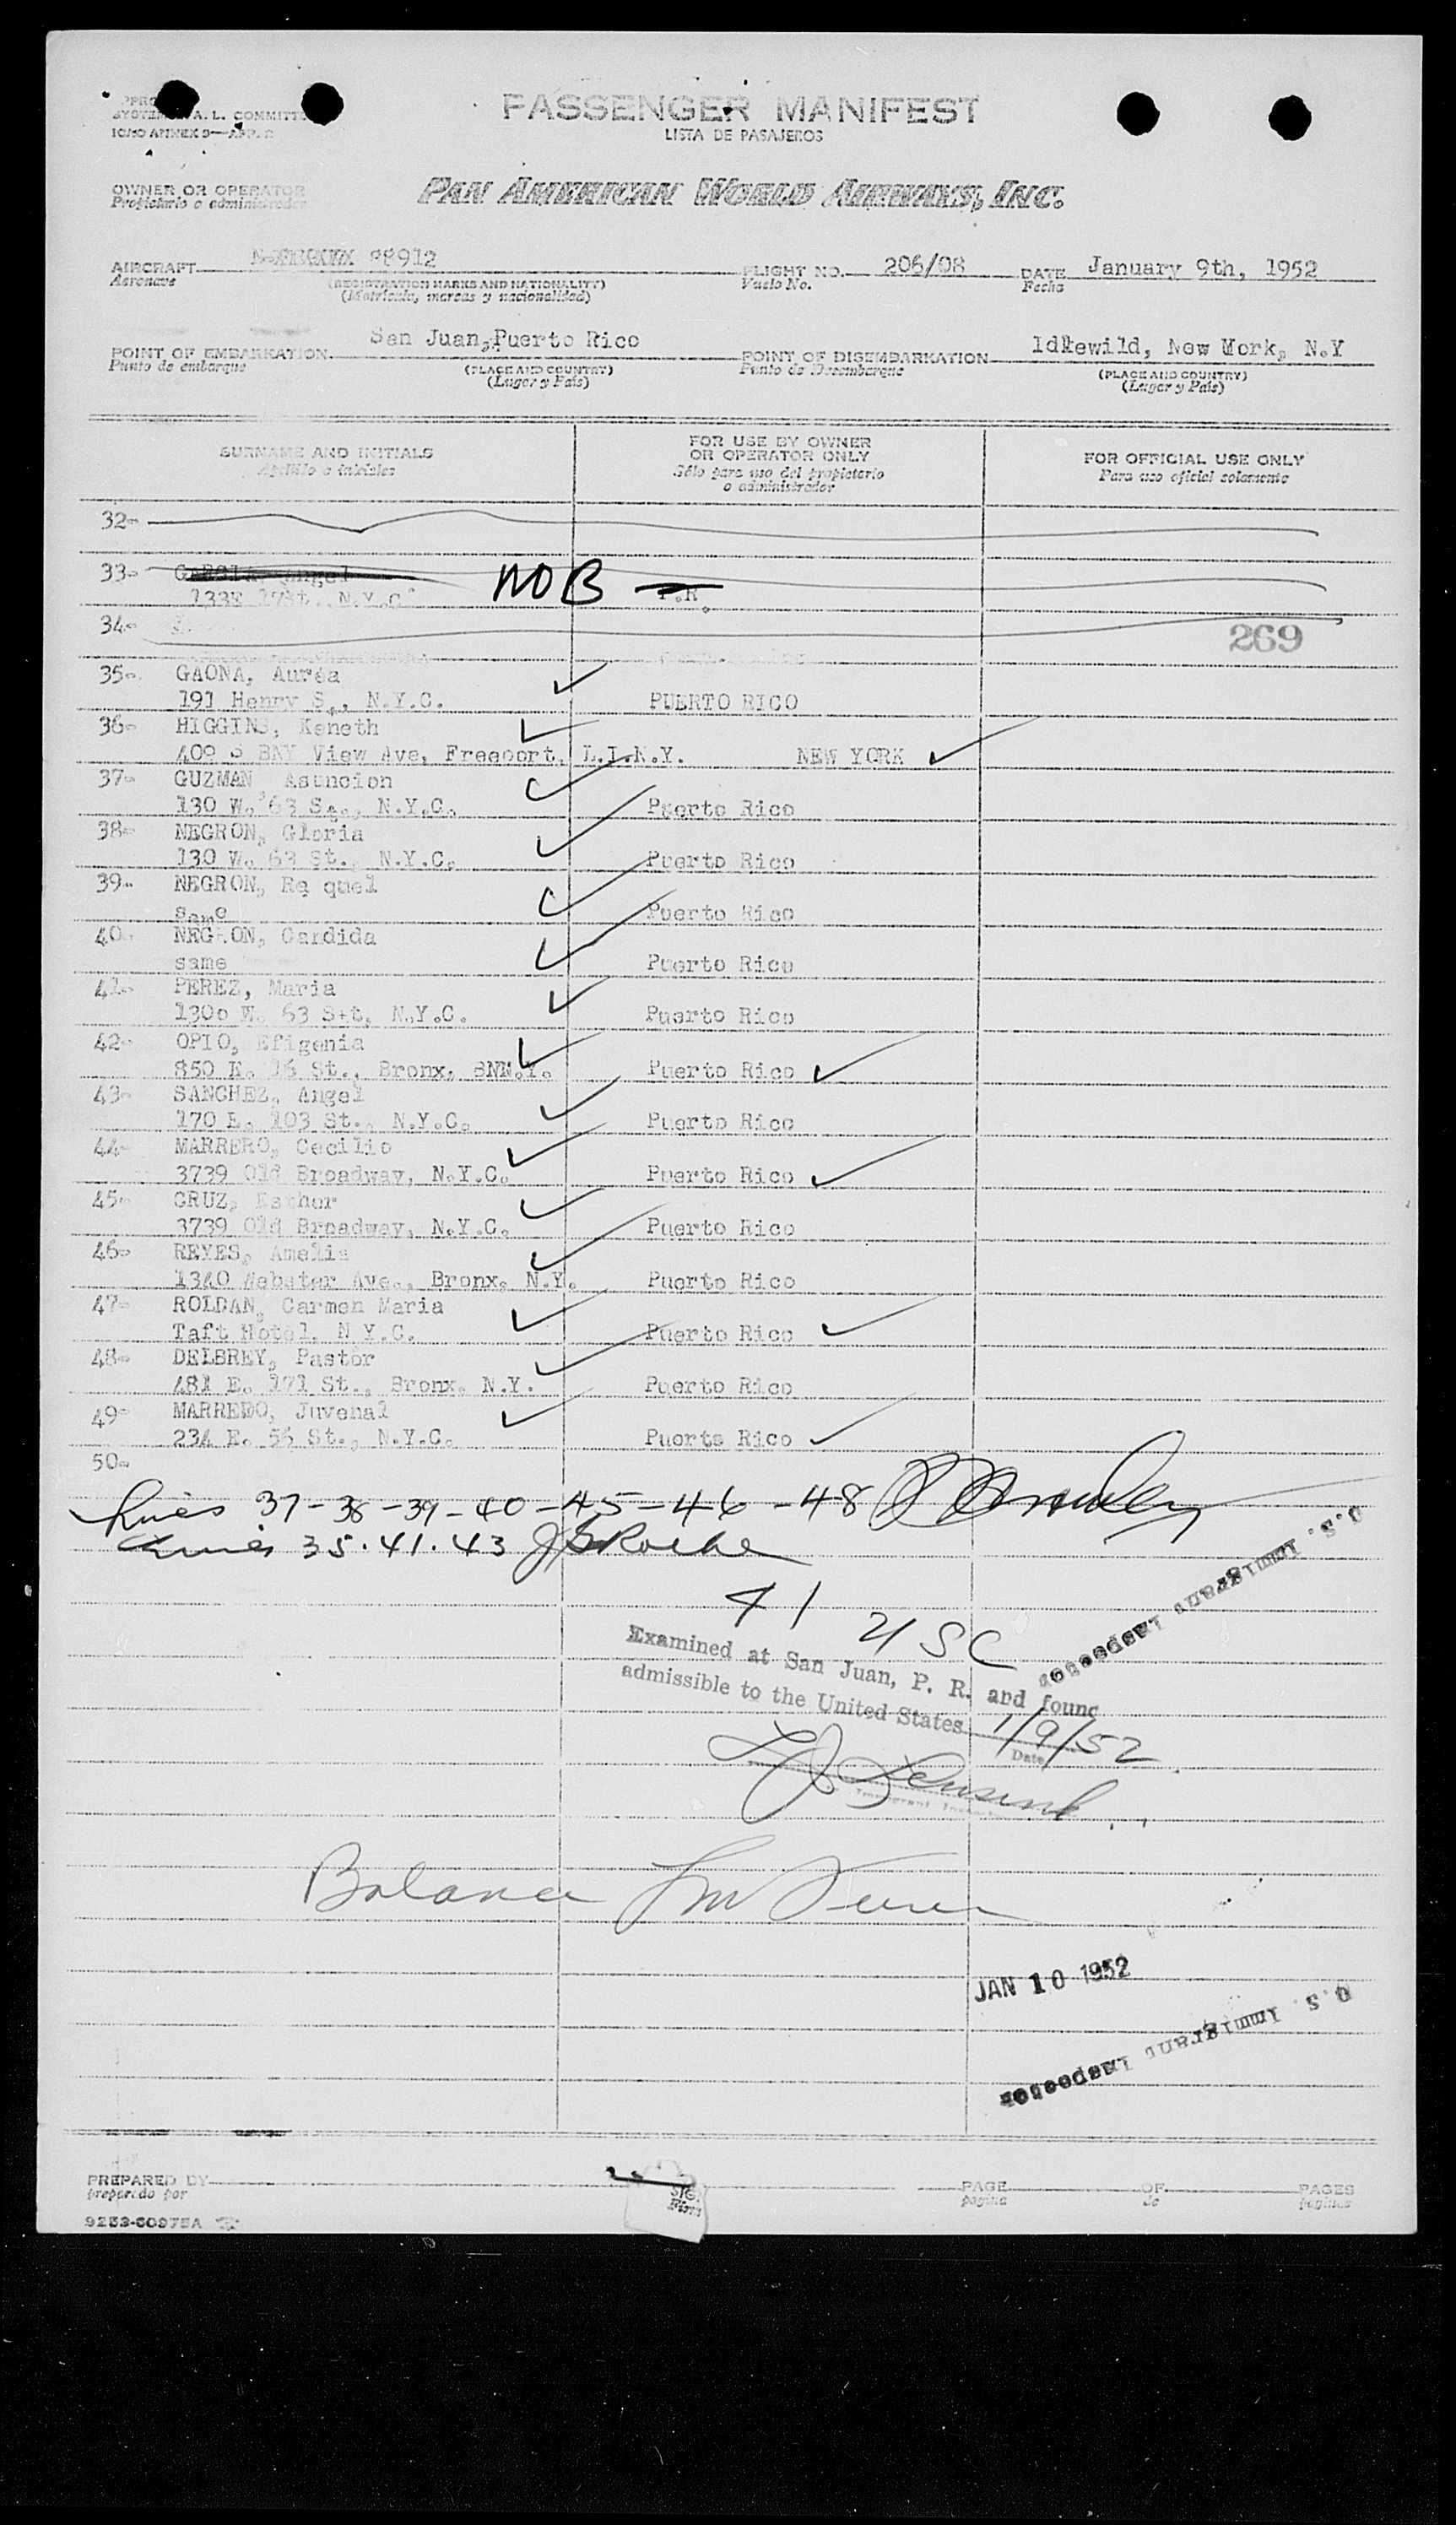 PASSENGER MANIFEST
LISTA DE PASAJEROS
A. L. COMMITT
OWNER OR OPERATOR
Propietario o administrador
PAN AMERICAN WORLD AIRWAYS, INC.
AIRCRAFT 88912
Aeronave
(REGISTRATION MARKS AND NATIONALITY)
(Matricula, marcas y nacionalidad)
FLIGHT NO. 206/08
Vuelo No.
DATE January 9th, 1952
Fecha
POINT OF EMBARKATION San Juan, Puerto Rico
Punto de embarque
(PLACE AND COUNTRY)
(Lugar y País)
POINT OF DISEMBARKATION Idlewild, New York, N.Y
Punto de Desembarque
(PLACE AND COUNTRY)
(Lugar y País)
SURNAME AND INITIALS
Apellido e iniciales
FOR USE BY OWNER
OR OPERATOR ONLY
Sólo para uso del propietario
o administrador
FOR OFFICIAL USE ONLY
Para uso oficial solamente
32-
33- GARCIA, Angel NOB P.R.
N.Y.C
34-
269
35- GAONA, Aurea
191 Henry S., N.Y.C. PUERTO RICO
36- HIGGINS, Keneth
409 S BAY View Ave, Freeport, L.I.N.Y. NEW YORK
37- GUZMAN, Asuncion
130 W. 63 S., N.Y.C. Puerto Rico
38- NEGRON, Gloria
130 W. 63 St., N.Y.C. Puerto Rico
39- NEGRON, Ra quel
same Puerto Rico
40- NEGRON, Cardida
same Puerto Rico
41- PEREZ, Maria
130o W. 63 S+t, N.Y.C. Puerto Rico
42- OPIO, Efigenia
850 E. 16 St., Bronx, N.Y. Puerto Rico
43- SANCHEZ, Angel
170 E. 103 St., N.Y.C. Puerto Rico
44- MARRERO, Cecilio
3739 Old Broadway, N.Y.C. Puerto Rico
45- CRUZ, Esther
3739 Old Broadway, N.Y.C. Puerto Rico
46- REYES, Amelia
1340 Webster Ave., Bronx, N.Y. Puerto Rico
47- ROLDAN, Carmen Maria
Taft Hotel, N.Y.C. Puerto Rico
48- DELBREY, Pastor
481 E. 171 St., Bronx, N.Y. Puerto Rico
49- MARRERO, Juvenal
234 E. 56 St., N.Y.C. Puerto Rico
50-
Lines 37-38-39-40-45-46-48
Lines 35.41.43
U.S. Immigrant Inspector
41 USC
Examined at San Juan, P. R. and found
admissible to the United States 1/9/52
Date
Immigrant Inspector
Balance
JAN 10 1952
U.S. Immigrant Inspector
PREPARED BY
preparado por
SIG.
Firma
PAGE OF PAGES
página de páginas
9253-60975A